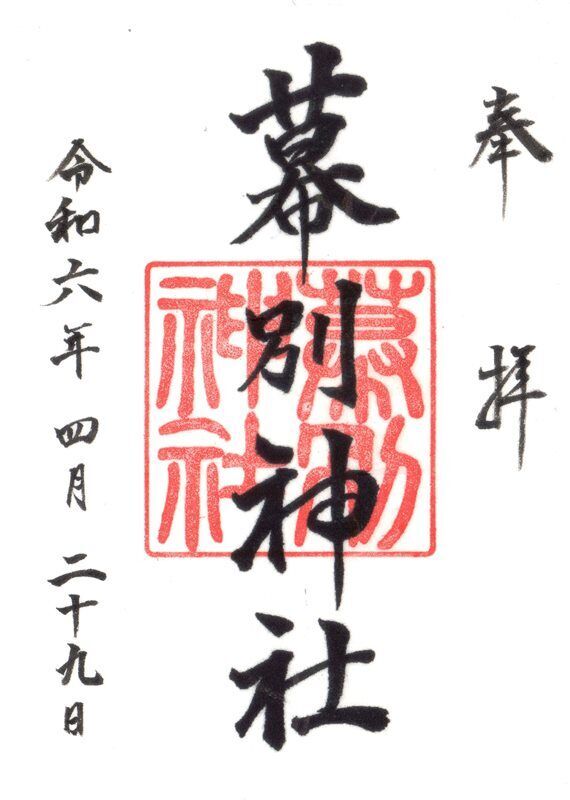 奉拝
幕別神社
幕別
神社
令和六年 四月 二十九日